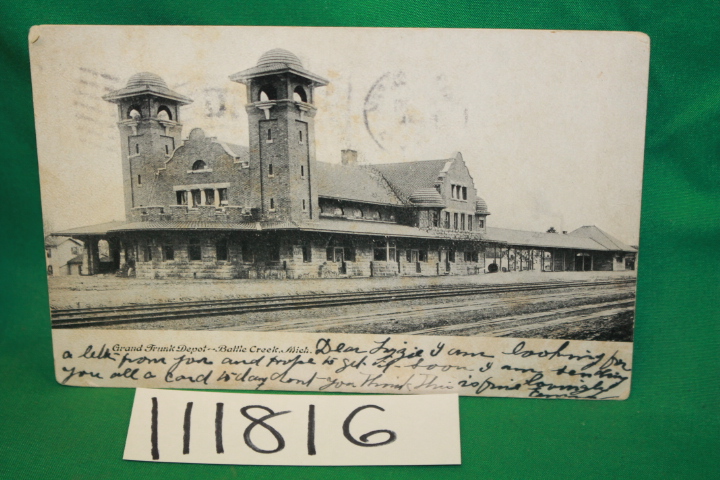 Grand Trunk Depot--Battle Creek, Mich. Dear Lizzie I am looking for
a letter from you and hope to get it soon I am sending
you all a card to day dont you think this is fine lovingly
111816